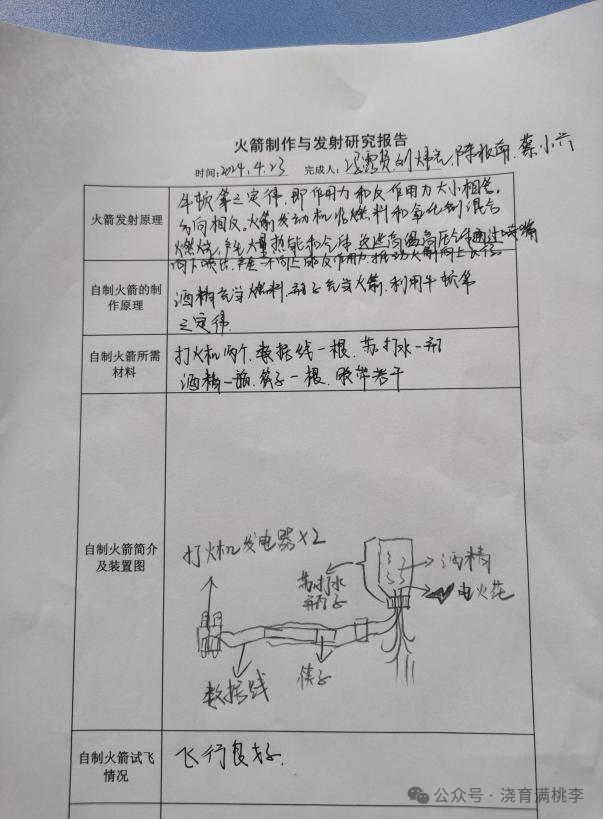 火箭制作与发射研究报告
时间:2024.4.23 完成人: 刘 陈 蔡小
火箭发射原理
牛顿第三定律,即作用力和反作用力大小相等,
方向相反。火箭发动机将燃料和氧化剂混合
燃烧,产生大量热能和气体,这些高温高压气体通过喷嘴
向下喷出,产生一个向上的反作用力,推动火箭向上飞行。
自制火箭的制
作原理
酒精充当燃料,瓶子充当火箭,利用牛顿第
三定律.
自制火箭所需
材料
打火机两个,数据线一根,苏打水一瓶
酒精一瓶,筷子一根,胶带若干
自制火箭简介
及装置图
打火机发电器×2
苏打水
瓶子
酒精
电火花
数据线
筷子
自制火箭试飞
情况
飞行良好.
公众号·浇育满桃李